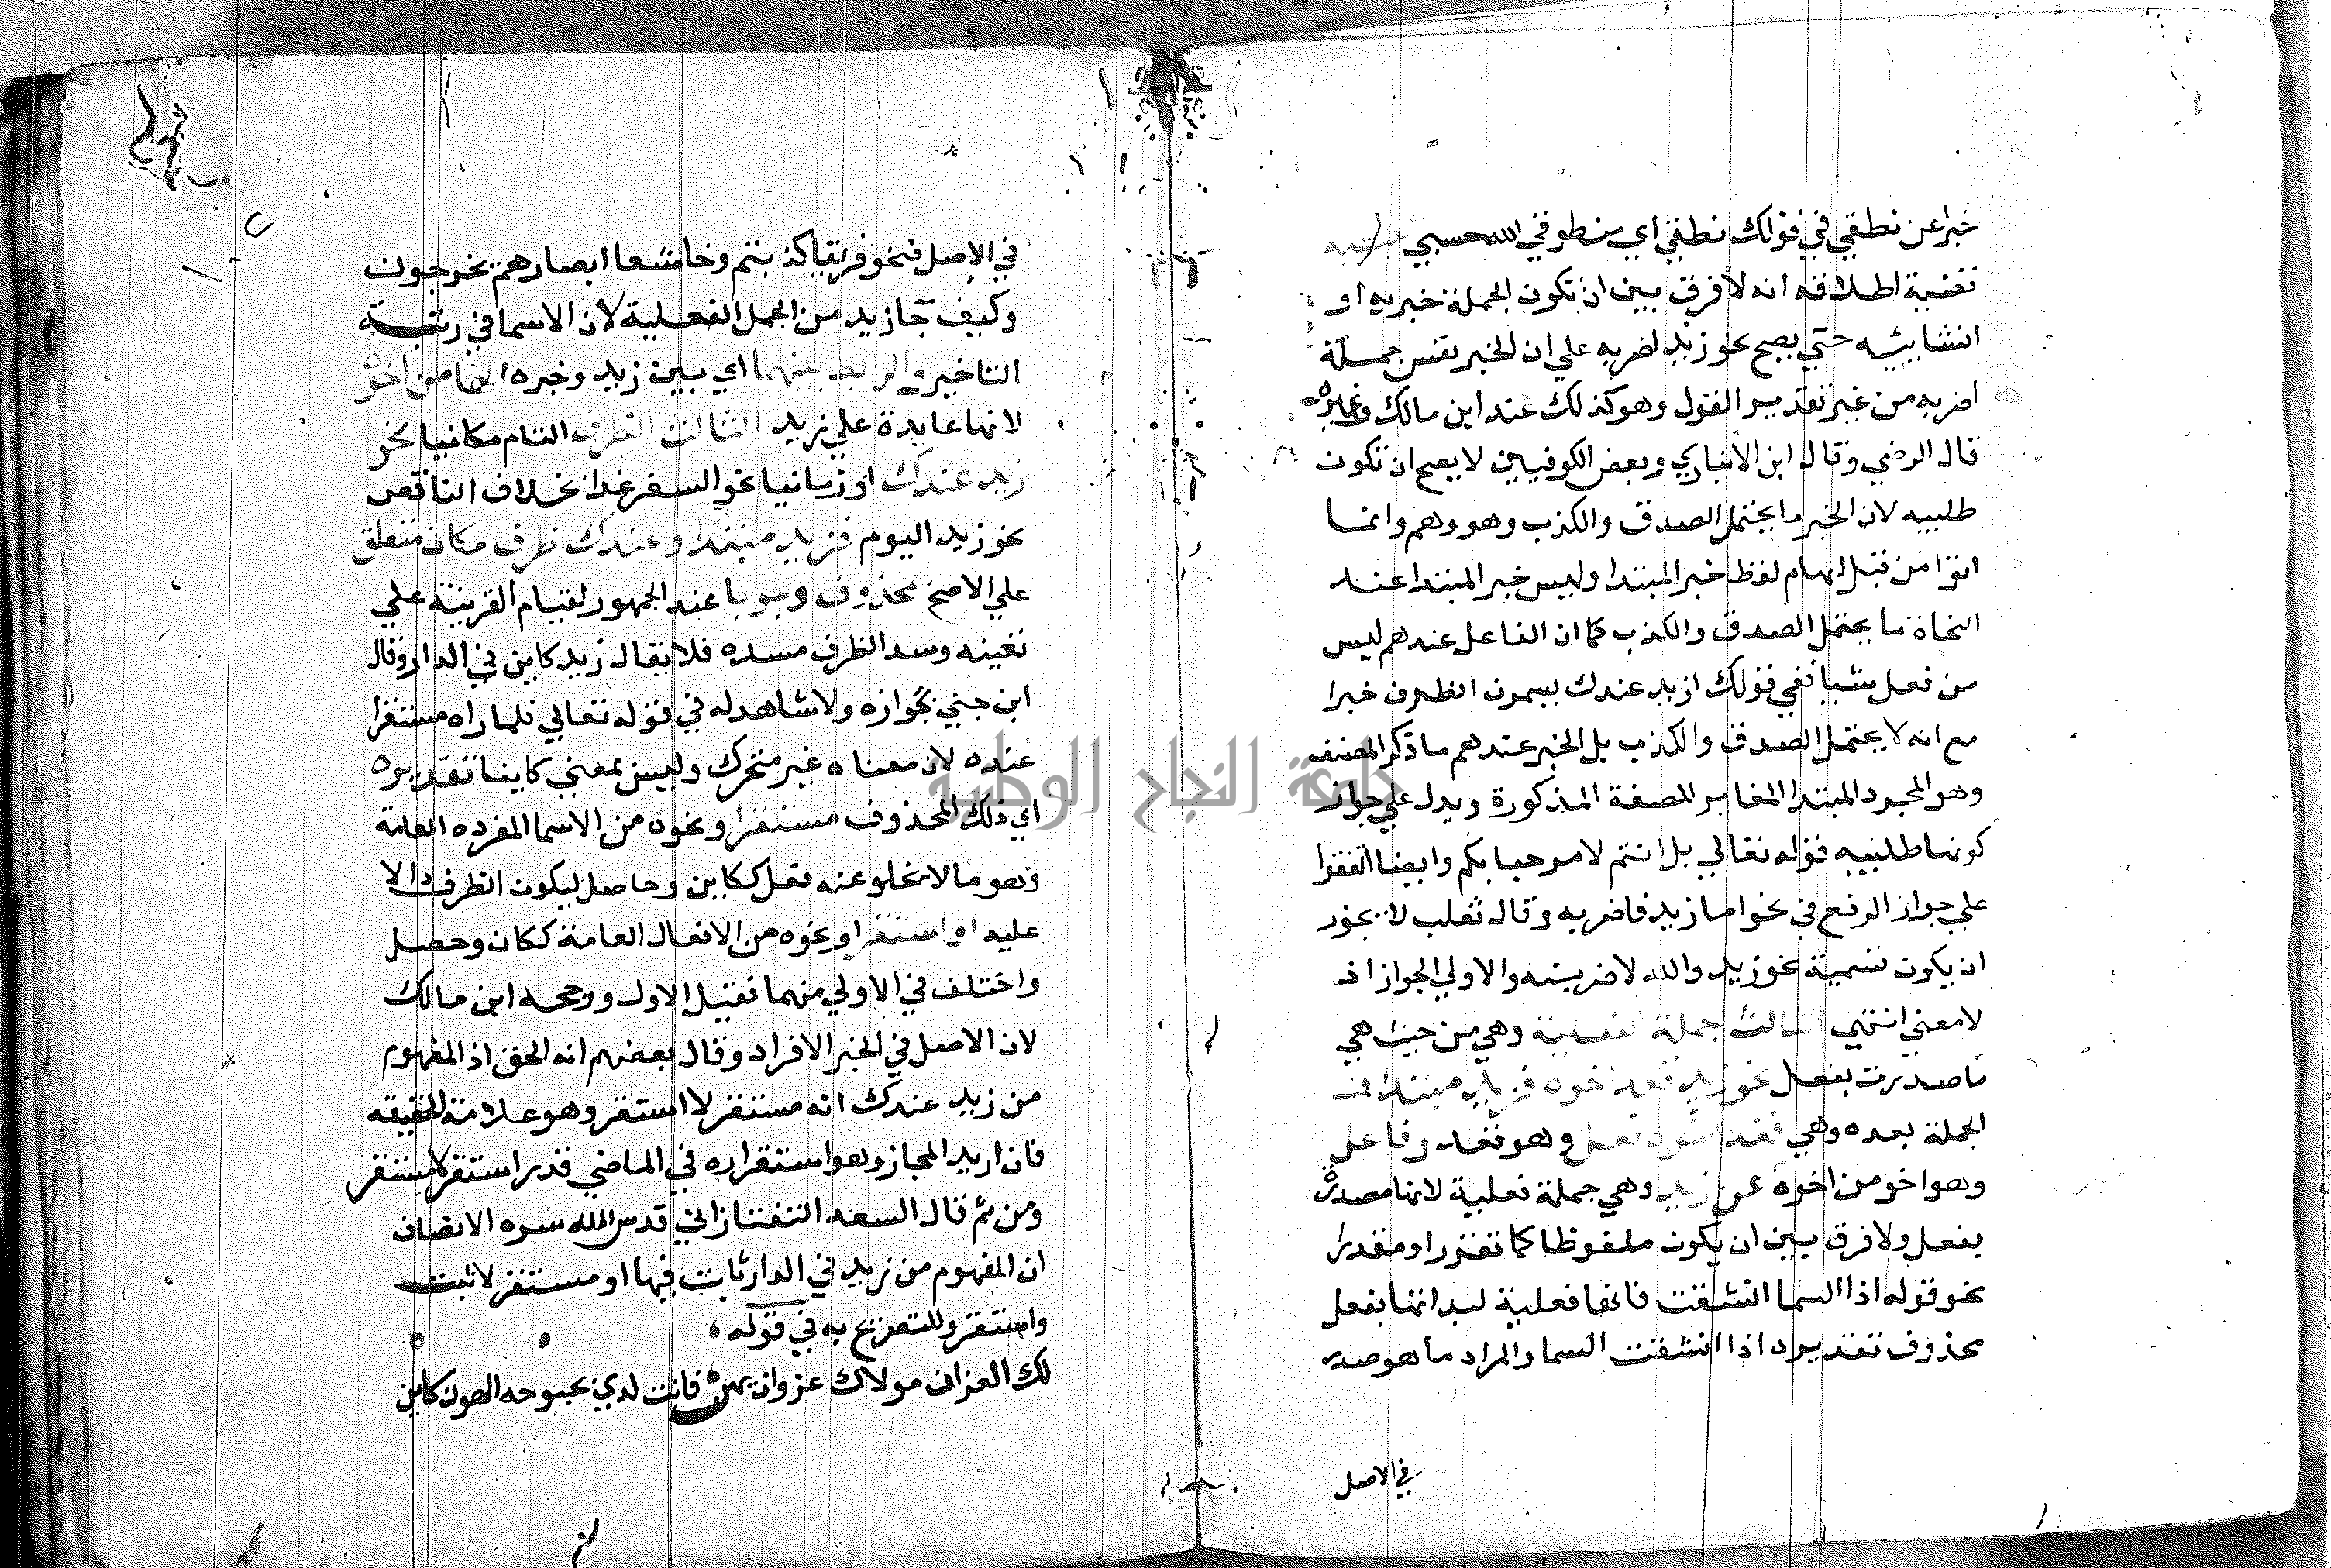 خبرا عن نطقي في قولك نطقي اي منطوقي الله حسبي تنبيه
نقضية اطلاقه انه لا فرق بين ان تكون الجملة خبريه او
انشائيه حتي يصح نحو زيد اضربه علي ان الخبر نفس جملة
اضربه من غير تقدير القول وهو كذلك عند ابن مالك وغيره
قال الرضي وقال ابن الانباري وبعض الكوفيين لا يصح ان تكون
طلبيه لان الخبر ما يحتمل الصدق والكذب وهو وهم وانما
اتوا من قبل ايهام لفظ خبر المبتدا وليس خبر المبتدا عند
النحاة ما يحتمل الصدق والكذب كما ان الفاعل عندهم ليس
من فعل شيا ففي قولك ازيد عندك يسمون الظرف خبرا
مع انه لا يحتمل الصدق والكذب بل الخبر عندهم ما ذكر المصنف
وهو المجرد المبتدا المغاير للصفة المذكورة ويدل علي جواز
كونها طلبيه قوله تعالي بل انتم لا مرحبا بكم وايضا اتفقوا
علي جواز الرفع في نحو اما زيد فاضربه وقال ثعلب لا يجوز
ان يكون قسمية نحو زيد والله لا ضربته والاولي الجواز اذ
لا معني انتهي الثالث جملة فعلية وهي من حيث هي
ما صدرت بفعل نحو زيد قعد اخوه فزيد مبتدا
الجملة بعده وهي قعد اخوه فعل وهو قعد وفاعل
وهو اخو من اخوه عن زيد وهي جملة فعلية لانها مصدرة
بفعل ولا فرق بين ان يكون ملفوظا كما تقرر او مقدرا
نحو قوله اذا السما انشقت فانها فعلية لبدانها بفعل
محذوف تقديره اذا انشقت السما والمراد ما هو صدر
في الاصل
في الاصل فنحو فريقا كذبتم وخاشعا ابصارهم يخرجون
وكيف جا زيد من الجمل الفعلية لان الاسما في رتبة
التاخير والرابط بينهما اي بين زيد وخبره الها من اخوه
لانها عايدة علي زيد الثالث الظرف التام مكانيا نحو
زيد عندك او زمانيا نحو السفر غدا بخلاف الناقص
نحو زيد اليوم فزيد مبتدا وعندك ظرف مكان متعلق
علي الاصح بمحذوف وجوبا عند الجمهور لقيام القرينة علي
تعينه وسد الظرف مسده فلا يقال زيد كاين في الدار وقال
ابن جني بجوازه ولا شاهد له في قوله تعالي فلما راه مستقرا
عنده لان معناه غير متحرك وليس بمعني كاينا تقديره
اي ذلك المحذوف مستقرا ونحوه من الاسما المفرده العامة
وهو ما لا يخلو عنه فعل ككاين وحاصل ليكون الظرف دالا
عليه او استقر او نحوه من الافعال العامة ككان وحصل
واختلف في الاولي منهما فقيل الاول ورجحه ابن مالك
لان الاصل في الخبر الافراد وقال بعضهم انه الحق اذ المفهوم
من زيد عندك انه مستقر لا استقر وهو علامة الحقيقه
فان اريد المجاز وهو استقراره في الماضي قدر استقر لا مستقر
ومن ثم قال السعد التفتازاني قدس الله سره الانصاف
ان المفهوم من زيد في الدار ثابت فيها او مستقر لا ثبت
واستقر وللتصريح به في قوله
لك العز ان مولاك عز وان يهن فانت لدي بحبوحه الهون كاين
جامعة النجاح الوطنية